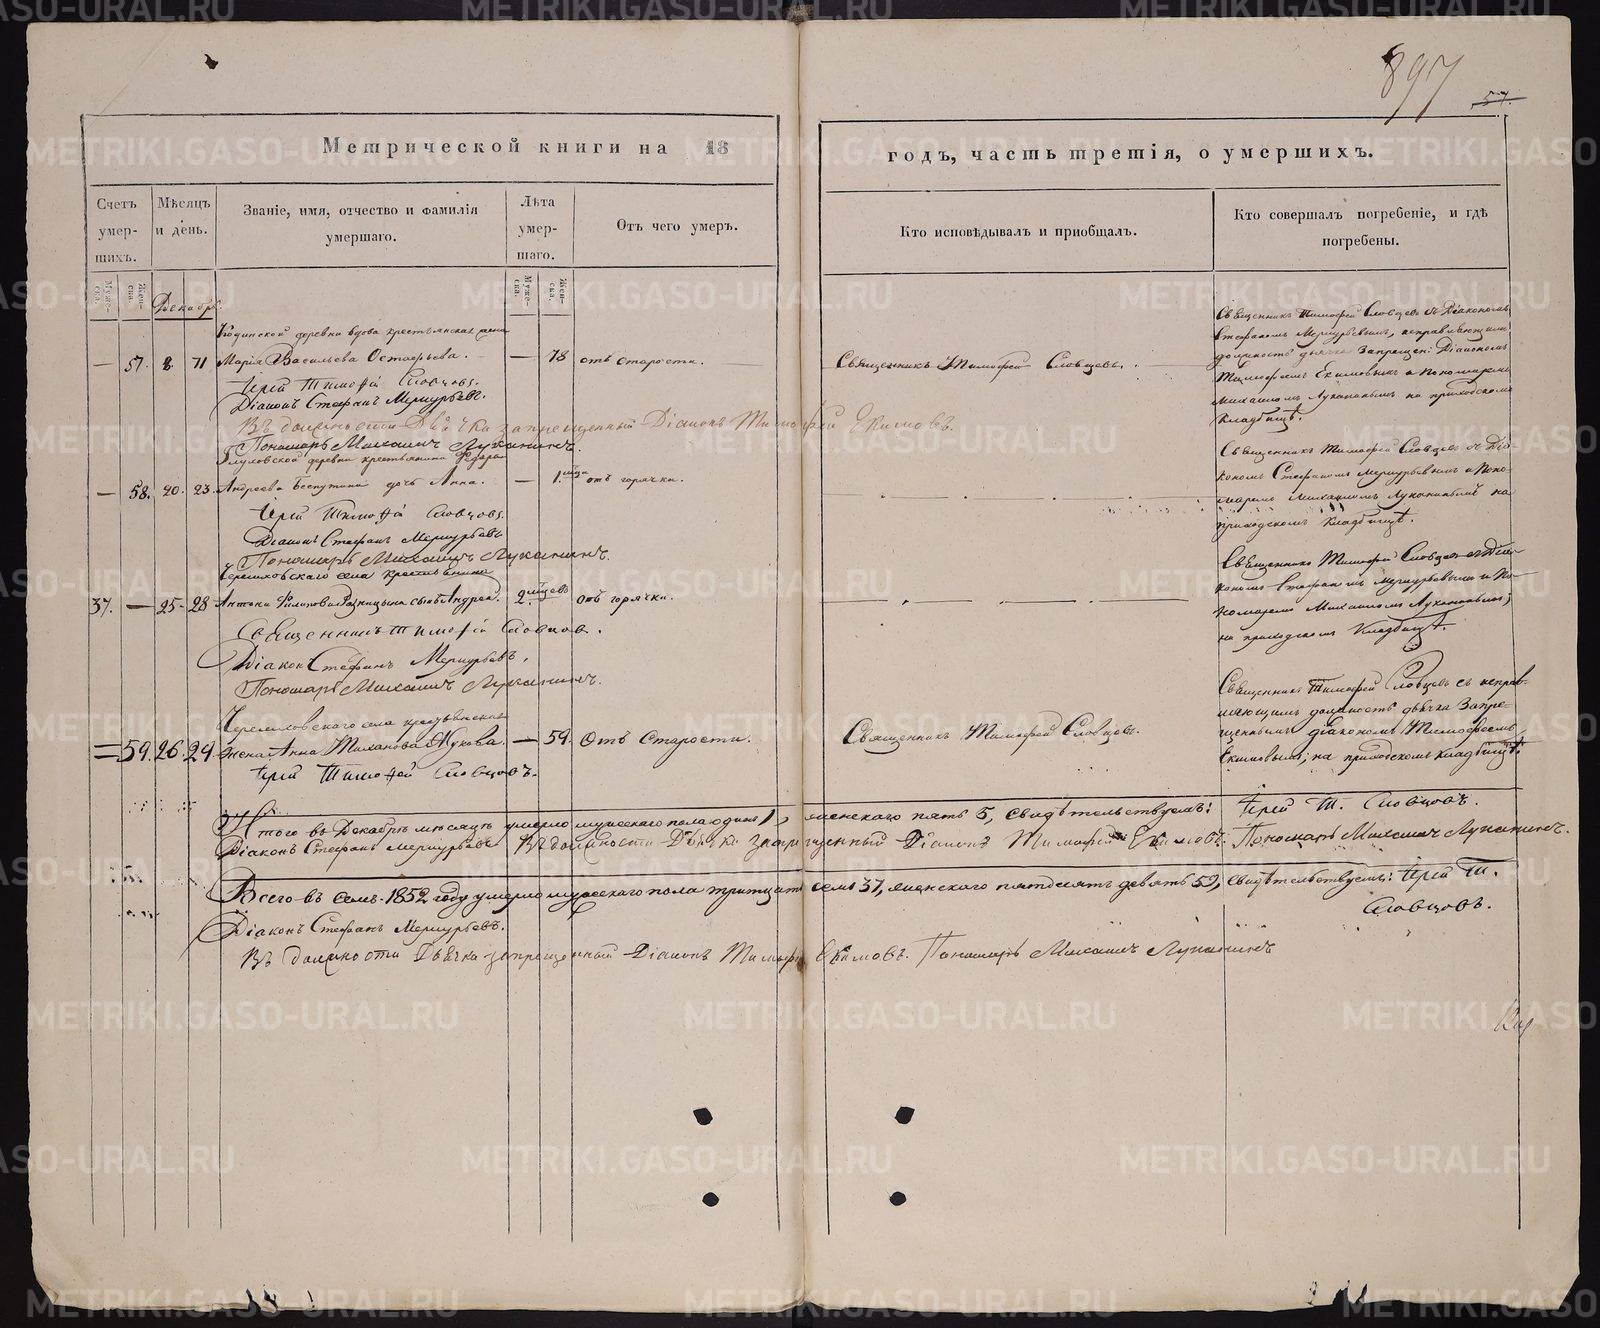 897
57.
Метрической книги на 18
годъ, часть третія, о умершихъ.
Счетъ умер-шихъ.
Мѣсяцъ и день.
Званіе, имя, отчество и фамилія умершаго.
Лѣта умер-шаго.
Отъ чего умеръ.
Кто исповѣдывалъ и пріобщалъ.
Кто совершалъ погребеніе, и гдѣ погребены.
Муже-ска.
Жен-ска.
Декабрь.
Муже-ска.
Жен-ска.
деревни вдова крестьянская жена
— 57. 8. 11 Марія Васильева Остафьева. — 78 отъ старости.
Священникъ Тимофей Словцовъ.
Священникъ Тимофей Словцовъ съ Діакономъ
Стефаномъ Меркурьевымъ, исправляющимъ
должность дьячка запрещен: Діакономъ
Тимофеемъ Екимовымъ и пономаремъ
Михаиломъ Луканинымъ на приходскомъ
кладбищѣ.
Іерей Тимофей Словцовъ.
Діаконъ Стефанъ Меркурьевъ.
Въ должности Дьячка запрещенный Діаконъ Тимофей Екимовъ.
Пономарь Михаилъ Луканинъ.
деревни крестьянина Федора
— 58. 20. 23. Андреева дочь Анна. — 1. отъ горячки.
Священникъ Тимофей Словцовъ съ Діа-
кономъ Стефаномъ Меркурьевымъ и Поно-
маремъ Михаиломъ Луканинымъ на
приходскомъ кладбищѣ.
Іерей Тимофей Словцовъ.
Діаконъ Стефанъ Меркурьевъ
Пономарь Михаилъ Луканинъ.
села крестьянина
37. — 25. 28. Антона Филипова сынъ Андрей. 2. отъ горячки.
Священникъ Тимофей Словцовъ съ Діа-
кономъ Стефаномъ Меркурьевымъ и По-
номаремъ Михаиломъ Луканинымъ,
на приходскомъ Кладбищѣ.
Священникъ Тимофей Словцовъ.
Діаконъ Стефанъ Меркурьевъ.
Пономарь Михаилъ Луканинъ.
села крестьянская
— 59. 26. 29. жена Анна — 59. Отъ Старости.
Священникъ Тимофей Словцовъ.
Священникъ Тимофей Словцовъ съ исправ-
ляющимъ должность дьячка Запре-
щеннымъ діакономъ Тимофеемъ
Екимовымъ, на приходскомъ кладбищѣ.
Іерей Тимофей Словцовъ.
Итого въ Декабрѣ мѣсяцѣ умерло мужескаго пола одинъ 1, женскаго пять 5, свидѣтельствуемъ: Іерей Т. Словцовъ.
Діаконъ Стефанъ Меркурьевъ. Въ должности Дьячка запрещенный Діаконъ Тимофей Екимовъ. Пономарь Михаилъ Луканинъ.
Всего въ семъ 1852 году умерло мужескаго пола тритцать семь 37, женскаго пятьдесятъ девять 59, свидѣтельствуемъ: Іерей Т.
Словцовъ.
Діаконъ Стефанъ Меркурьевъ.
Въ должности Дьячка запрещенный Діаконъ Тимофей Екимовъ. Пономарь Михаилъ Луканинъ
METRIKI.GASO-URAL.RU